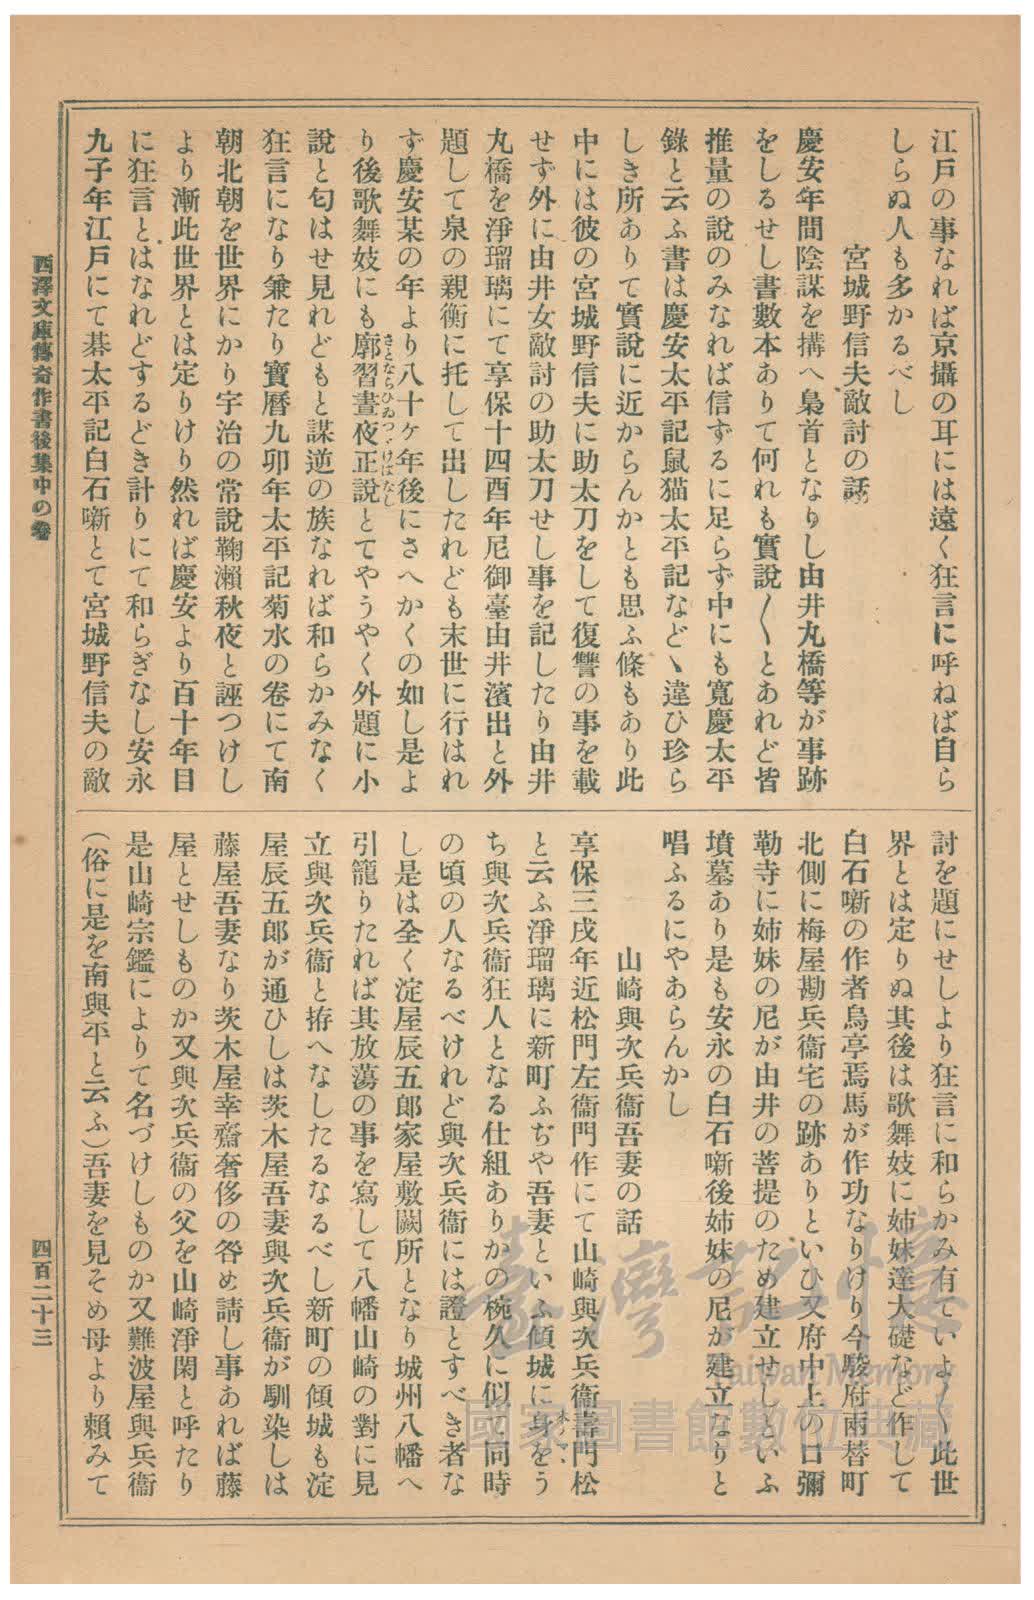 江戸の事なれば京攝の耳には遠く狂言に呼ねば自ら
しらぬ人も多かるべし
宮城野信夫敵討の話
慶安年間陰謀を搆へ梟首となりし由井丸橋等が事跡
をしるせし書數本ありて何れも實說〳〵とあれど皆
推量の說のみなれば信ずるに足らず中にも寬慶太平
錄と云ふ書は慶安太平記鼠猫太平記などゝ違ひ珍ら
しき所ありて實說に近からんかとも思ふ條もあり此
中には彼の宮城野信夫に助太刀をして復讐の事を載
せず外に由井女敵討の助太刀せし事を記したり由井
丸橋を淨瑠璃にて享保十四酉年尼御臺由井濱出と外
題して泉の親衡に托して出したれども末世に行はれ
ず慶安某の年より八十ヶ年後にさへかくの如し是よ
り後歌舞妓にも廓習晝夜正說とてやうやく外題に小
說と匂はせ見れどもと謀逆の族なれば和らかみなく
狂言になり兼たり寶曆九卯年太平記菊水の卷にて南
朝北朝を世界にかり宇治の常說鞠瀨秋夜と誣つけし
より漸此世界とは定りけり然れば慶安より百十年目
に狂言とはなれどするどき計りにて和らぎなし安永
九子年江戸にて碁太平記白石噺とて宮城野信夫の敵
討を題にせしより狂言に和らかみ有ていよ〳〵此世
界とは定りぬ其後は歌舞妓に姉妹達大礎など作して
白石噺の作者烏亭焉馬が作功なりけり今駿府兩替町
北側に梅屋勘兵衞宅の跡ありといひ又府中上の日彌
勒寺に姉妹の尼が由井の菩提のため建立せしといふ
墳墓あり是も安永の白石噺後姉妹の尼が建立なりと
唱ふるにやあらんかし
山崎與次兵衞吾妻の話
享保三戌年近松門左衞門作にて山崎與次兵衞壽門松
と云ふ淨瑠璃に新町ふぢや吾妻といふ傾城に身をう
ち與次兵衞狂人となる仕組ありかの椀久に似て同時
の頃の人なるべけれど與次兵衞には證とすべき者な
し是は全く淀屋辰五郎家屋敷闕所となり城州八幡へ
引籠りたれば其放蕩の事を寫して八幡山崎の對に見
立與次兵衞と拵へなしたるなるべし新町の傾城も淀
屋辰五郎が通ひしは茨木屋吾妻與次兵衞が馴染しは
藤屋吾妻なり茨木屋幸齋奢侈の咎め請し事あれば藤
屋とせしものか又與次兵衞の父を山崎淨閑と呼たり
是山崎宗鑑によりて名づけしものか又難波屋與兵衞
(俗に是を南與平と云ふ)吾妻を見そめ母より賴みて
西澤文庫傳奇作書後集中の卷
四百二十三
臺灣記憶
Taiwan Memory
國家圖書館數位典藏